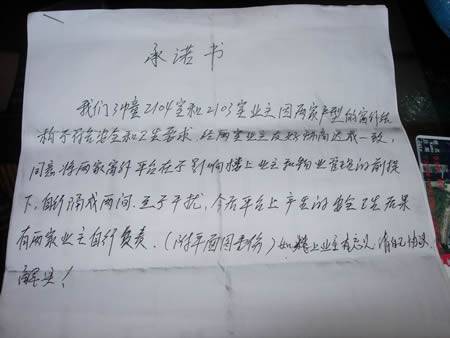 承诺书
我们34幢2104室和2103室业主因两家户型的窗外结
构不符合安全和卫生要求，经两室业主友好协商达成一致，
同意将两家窗外平台在不影响楼上业主和物业管理的前提
下，自行隔成两间，互不干扰，今后平台上产生的安全卫生后果
有两家业主自行负责。（附平面图壹份）如楼上业主有意义，请自己协议
解决！